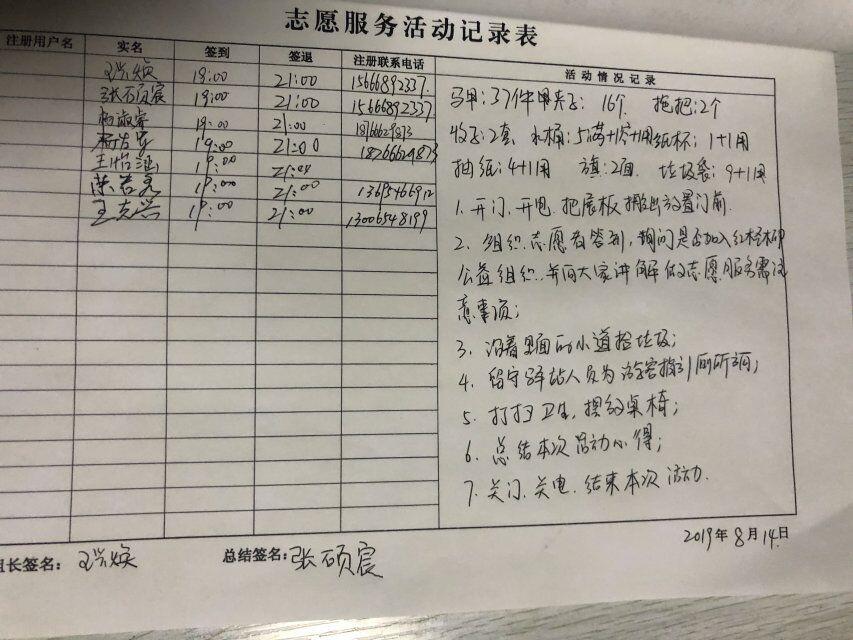 志愿服务活动记录表
注册用户名 实名 签到 签退 注册联系电话 活动情况记录
19:00 21:00 15666892337
张硕宸 19:00 21:00 15666892337
19:00 21:00 18766629873
19:00 21:00 18266629873
19:00 21:00
19:00 21:00
19:00 21:00 13006548199
马甲:37件 甲夹子: 16个 拖把:2个
牧子:2套 水桶:5满+1空+1用 纸杯: 1+1用
抽纸:4+1用 旗:2面 垃圾袋: 9+1用
1. 开门、开电、把展板搬出放置门前.
2. 组织志愿者签到,询问是否加入
公益组织.并向大家讲解做志愿服务需注
意事项;
3. 沿着里面的小道捡垃圾;
4. 留守驿站人员为游客指引厕所;
5. 打扫卫生,摆放桌椅;
6. 总结本次活动心得;
7. 关门、关电、结束本次活动.
2019年8月14日
组长签名: 总结签名:张硕宸